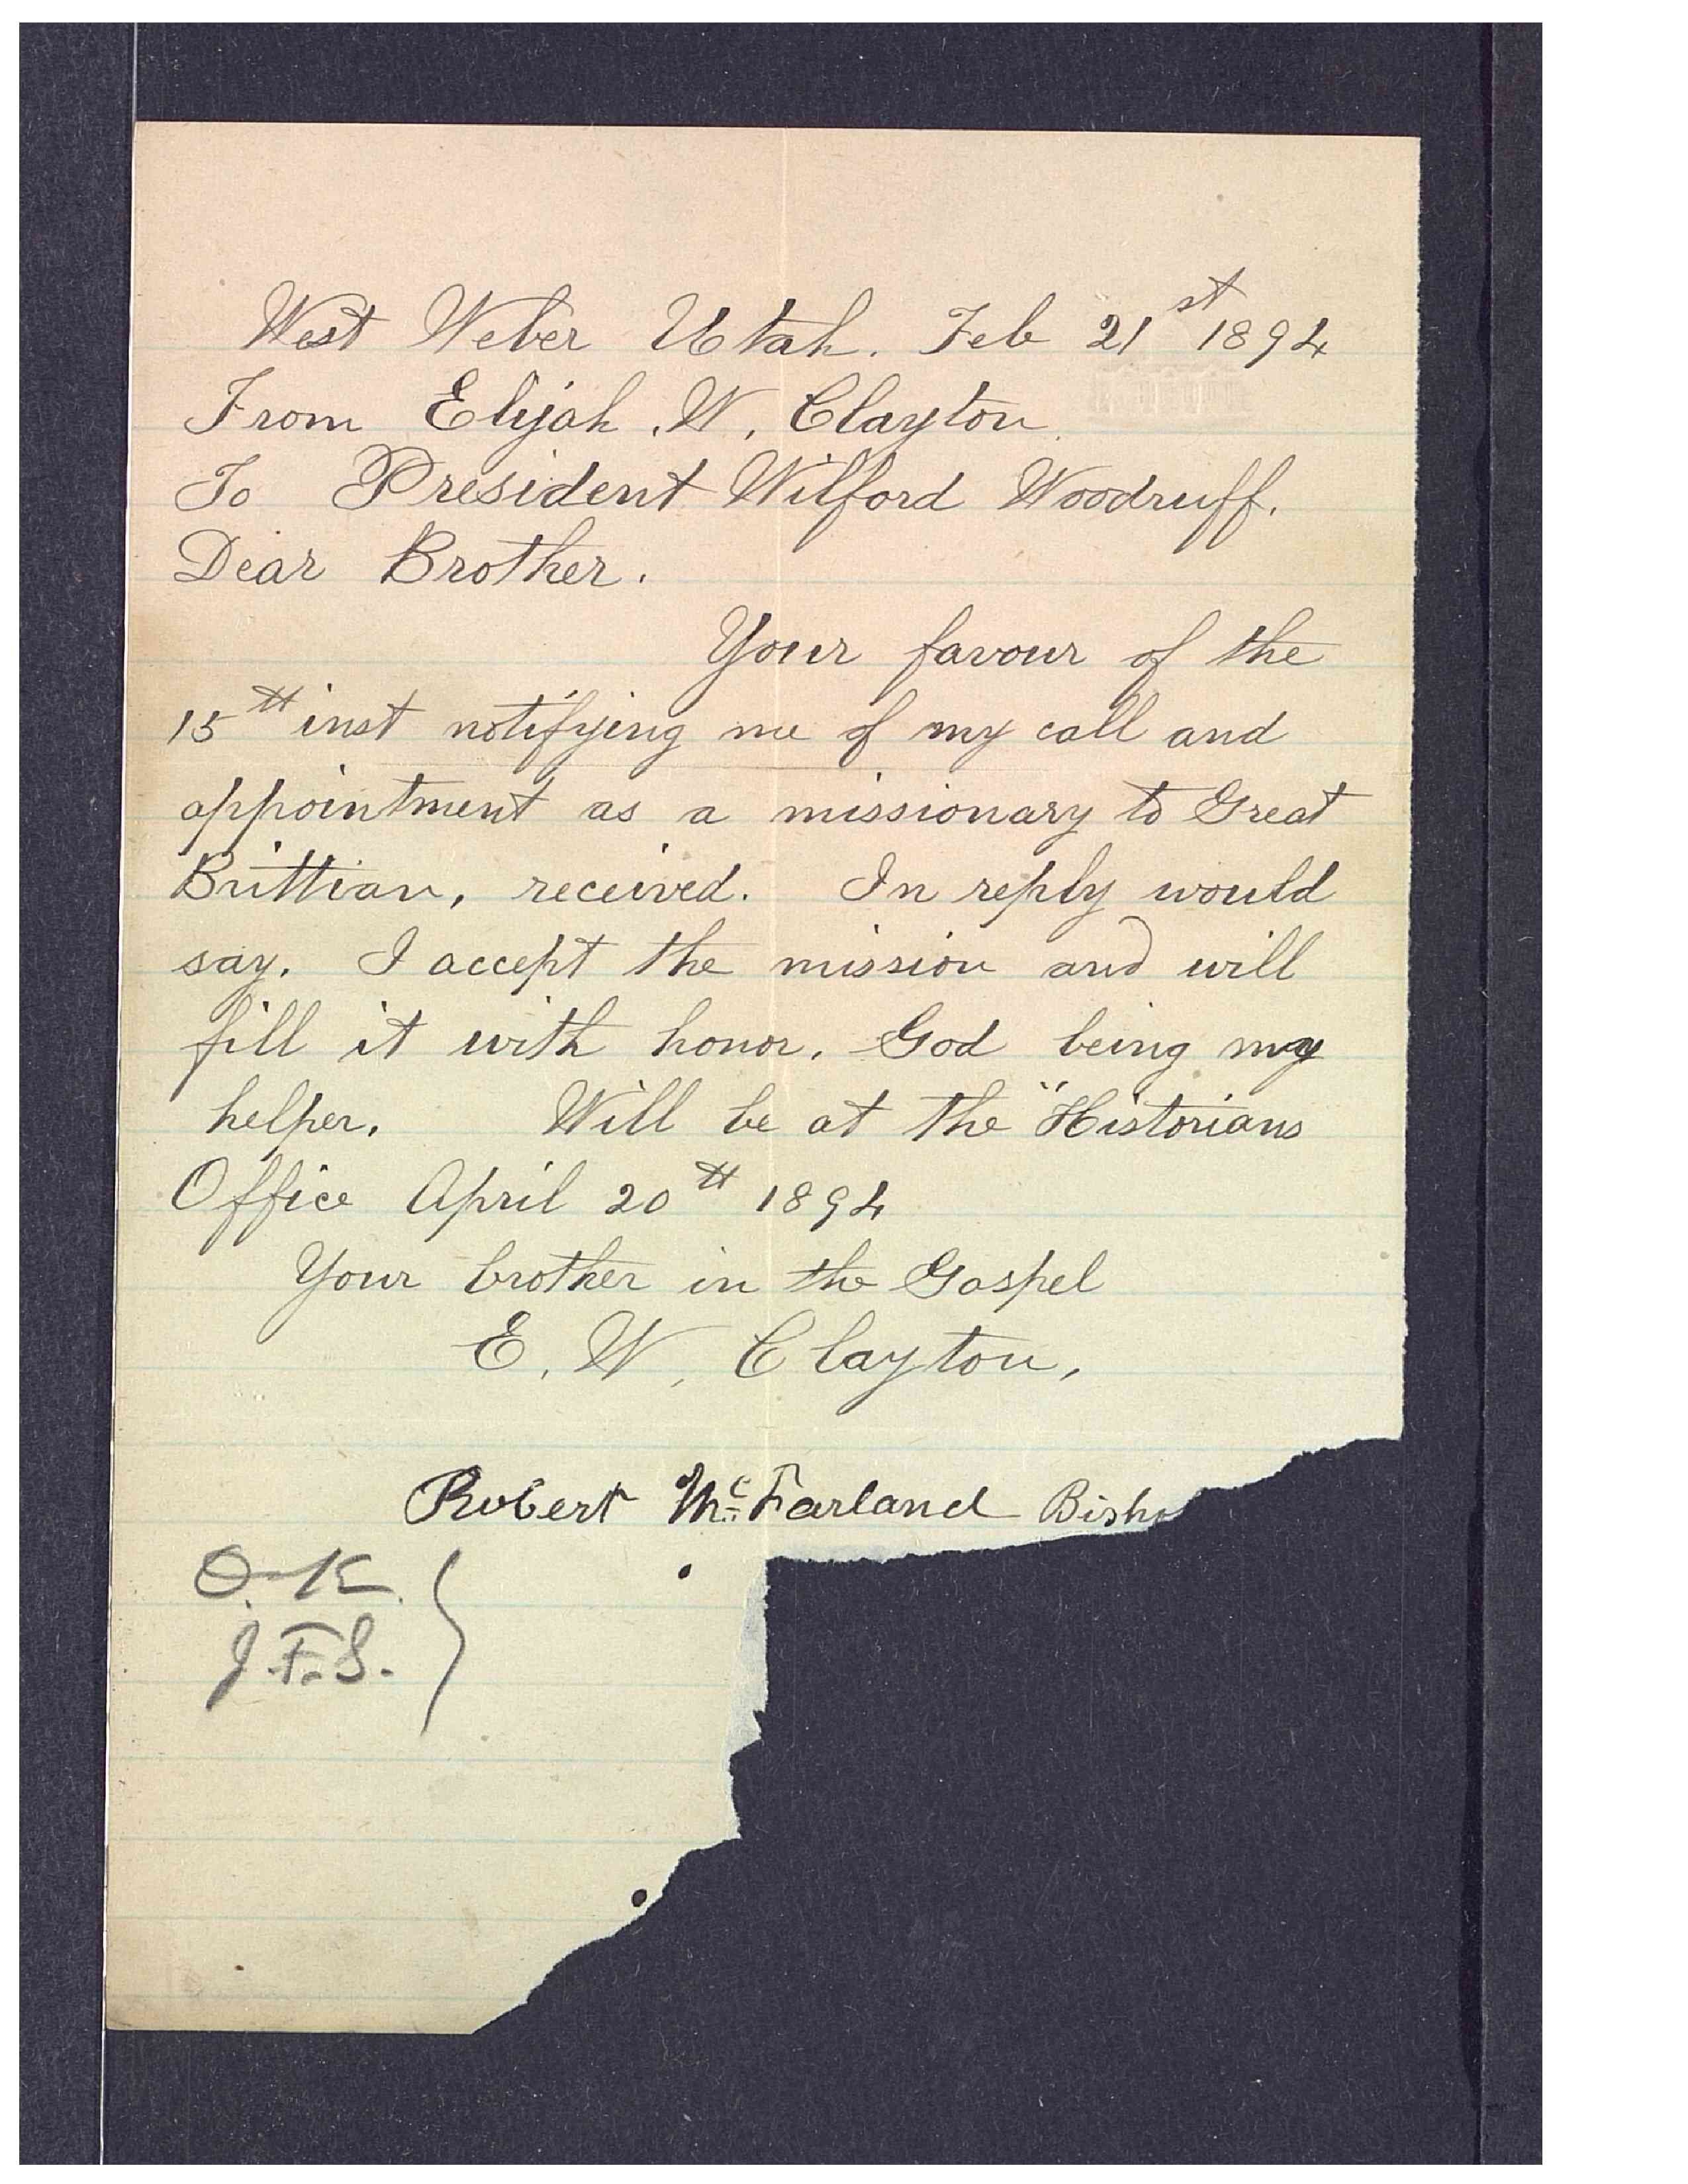 West Weber Utah. Feb 21st 1894
From Elijah .W. Clayton.
To President Wilford Woodruff.
Dear Brother.
Your favour of the
15th inst notifying me of my call and
appointment as a missionary to Great
Brittian, received. In reply would
say. I accept the mission and will
fill it with honor. God being my
helper. Will be at the "Historians
Office April 20th 1894
Your brother in the Gospel
E. W. Clayton,
Robert McFarland Bisho
O.K.
J.F.S.